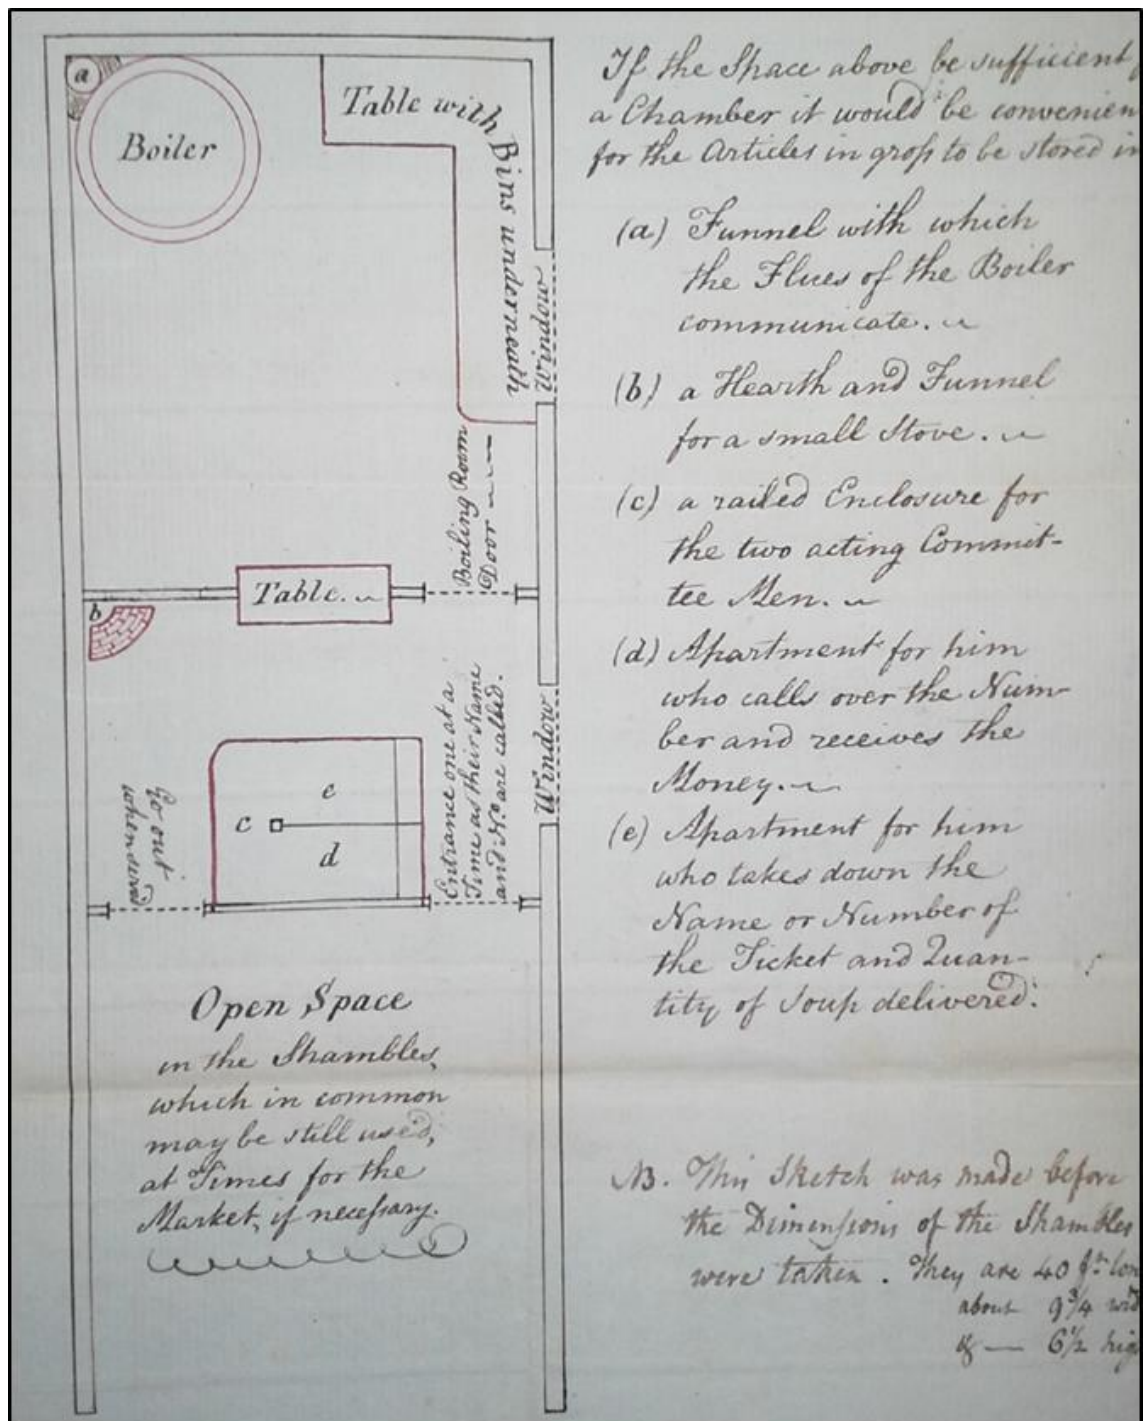 a
Boiler
Table with Bins underneath
Window
Boiling Room
Door
Table.
b
Window
Entrance one at a
Time as their Name
and No. are called.
Go out
when served
e
c
d
Open Space
in the Shambles,
which in common
may be still used,
at Times for the
Market, if neceſsary.
If the Space above be sufficient
a Chamber it would be convenien
for the Articles in groſs to be stored in
(a) Funnel with which
the Flues of the Boiler
communicate.
(b) a Hearth and Funnel
for a small Stove.
(c) a railed Enclosure for
the two acting Commit-
tee Men.
(d) Apartment for him
who calls over the Num-
ber and receives the
Money.
(e) Apartment for him
who takes down the
Name or Number of
the Ticket and Quan-
tity of Soup delivered.
NB. This Sketch was made before
the Dimenſions of the Shambles
were taken. They are 40 ft. lon
about 9 3/4 wid
& — 6 1/2 hig